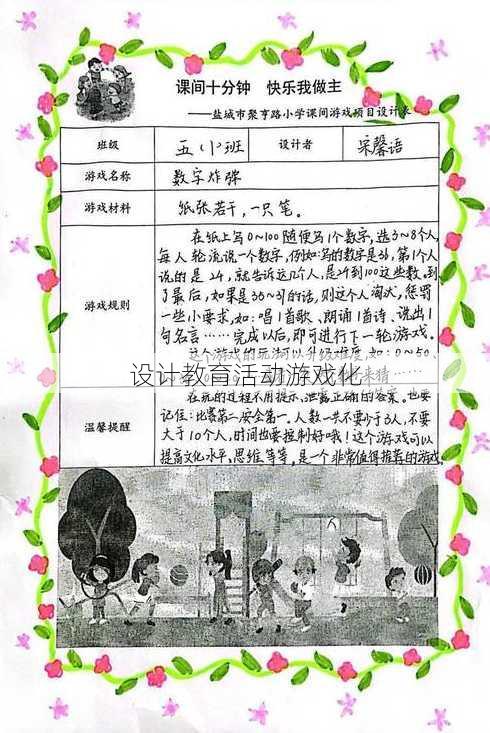 课间十分钟 快乐我做主
——盐城市聚亨路小学课间游戏项目设计表
班级 五(1)班 设计者 宋馨语
游戏名称 数字炸弹
游戏材料 纸张若干,一只笔。
游戏规则
在纸上写0~100随便写1个数字,选3~8个人,
每人轮流说一个数字,例如:写的数字是36,第1个人
说的是24,就告诉这几个人,是24到100这些数。到
了最后,如果是35~37的话,则这个人淘汰,惩罚
一些小要求,如:唱1首歌、朗诵1首诗、说出1
句名言……完成以后,即可进行下一轮游戏。
这个游戏的玩法可以升级难度,如:0~50、
设计教育活动游戏化
来猜……
温馨提醒
在玩的过程不用提示、泄露正确的答案。也要
记住:比赛第二,安全第一。人数一共不要少于3人,不要
大于10个人,时间也要控制好哦!这个游戏可以
提高文化水平、思维等等,是一个非常值得推荐的游戏。